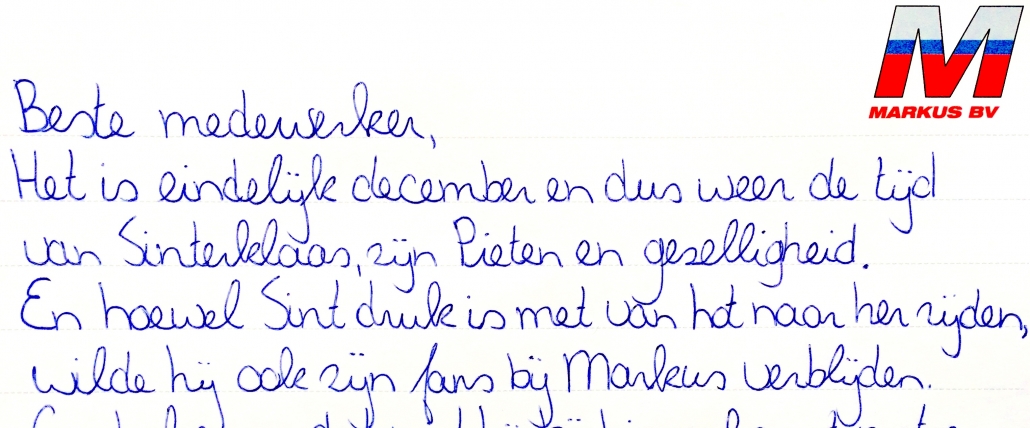 MARKUS BV
Beste medewerker,
Het is eindelijk december en dus weer de tijd
van Sinterklaas, zijn Pieten en geselligheid.
En hoewel Sint druk is met van hot naar her rijden,
wilde hij ook zijn fans bij Markus verblijden.